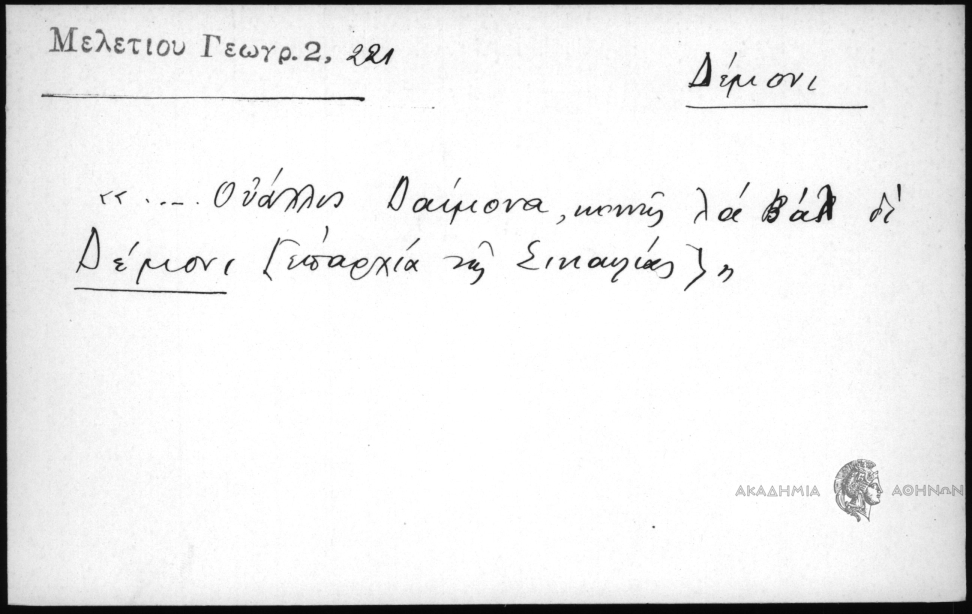 Μελετίου Γεωγρ. 2, 221
Δέμονι
«.... Οὐάλλις Δαίμονα, κοινῶς λά Βάλ δί
Δέμονι [ἐπαρχία τῆς Σικελίας]»
ΑΚΑΔΗΜΙΑ ΑΘΗΝΩΝ